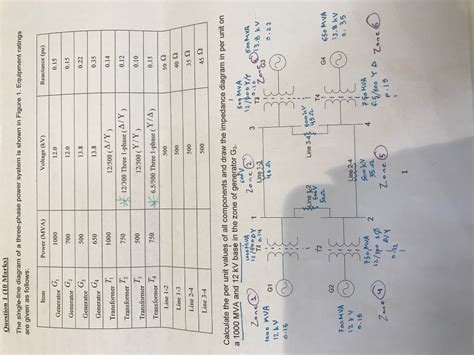 Question 1 (10 Marks)
The single-line diagram of a three-phase power system is shown in Figure 1. Equipment ratings
are given as follows:
Item Power (MVA) Voltage (kV) Reactance (pu)
Generator G1 1000 12.0 0.15
Generator G2 700 12.0 0.15
Generator G3 500 13.8 0.22
Generator G4 650 13.8 0.35
Transformer T1 1000 12/500 (Δ/Y) 0.14
Transformer T2 750 12/300 Three 1-phase (Δ/Y) 0.12
Transformer T3 500 12/500 (Y/Y) 0.10
Transformer T4 750 6.5/500 Three 1-phase (Y/Δ) 0.15
Line 1-2 500 50 Ω
Line 1-3 500 40 Ω
Line 2-4 500 35 Ω
Line 3-4 500 45 Ω
Calculate the per unit values of all components and draw the impedance diagram in per unit on
a 1000 MVA and 12 kV base in the zone of generator G3.
Zone 1
1000 MVA
12 kV
0.15
G1
T1 0.14
1
Zone 2
Line 1-3
40Ω
3
T3
500 MVA
12/500 Y/Y
0.10
Zone 3
G3
500 MVA
13.8 kV
0.22
500 kV
50Ω
Line 3-4
500 kV
G2
700 MVA
12 kV
0.15
Zone 4
T2
750 MVA
0.12
2
Line 2-4
500 kV
35Ω
Zone 5
4
T4
750 MVA
6.5/500 Y D
0.15
G4
650 MVA
13.8 kV
0.35
Zone 6
1